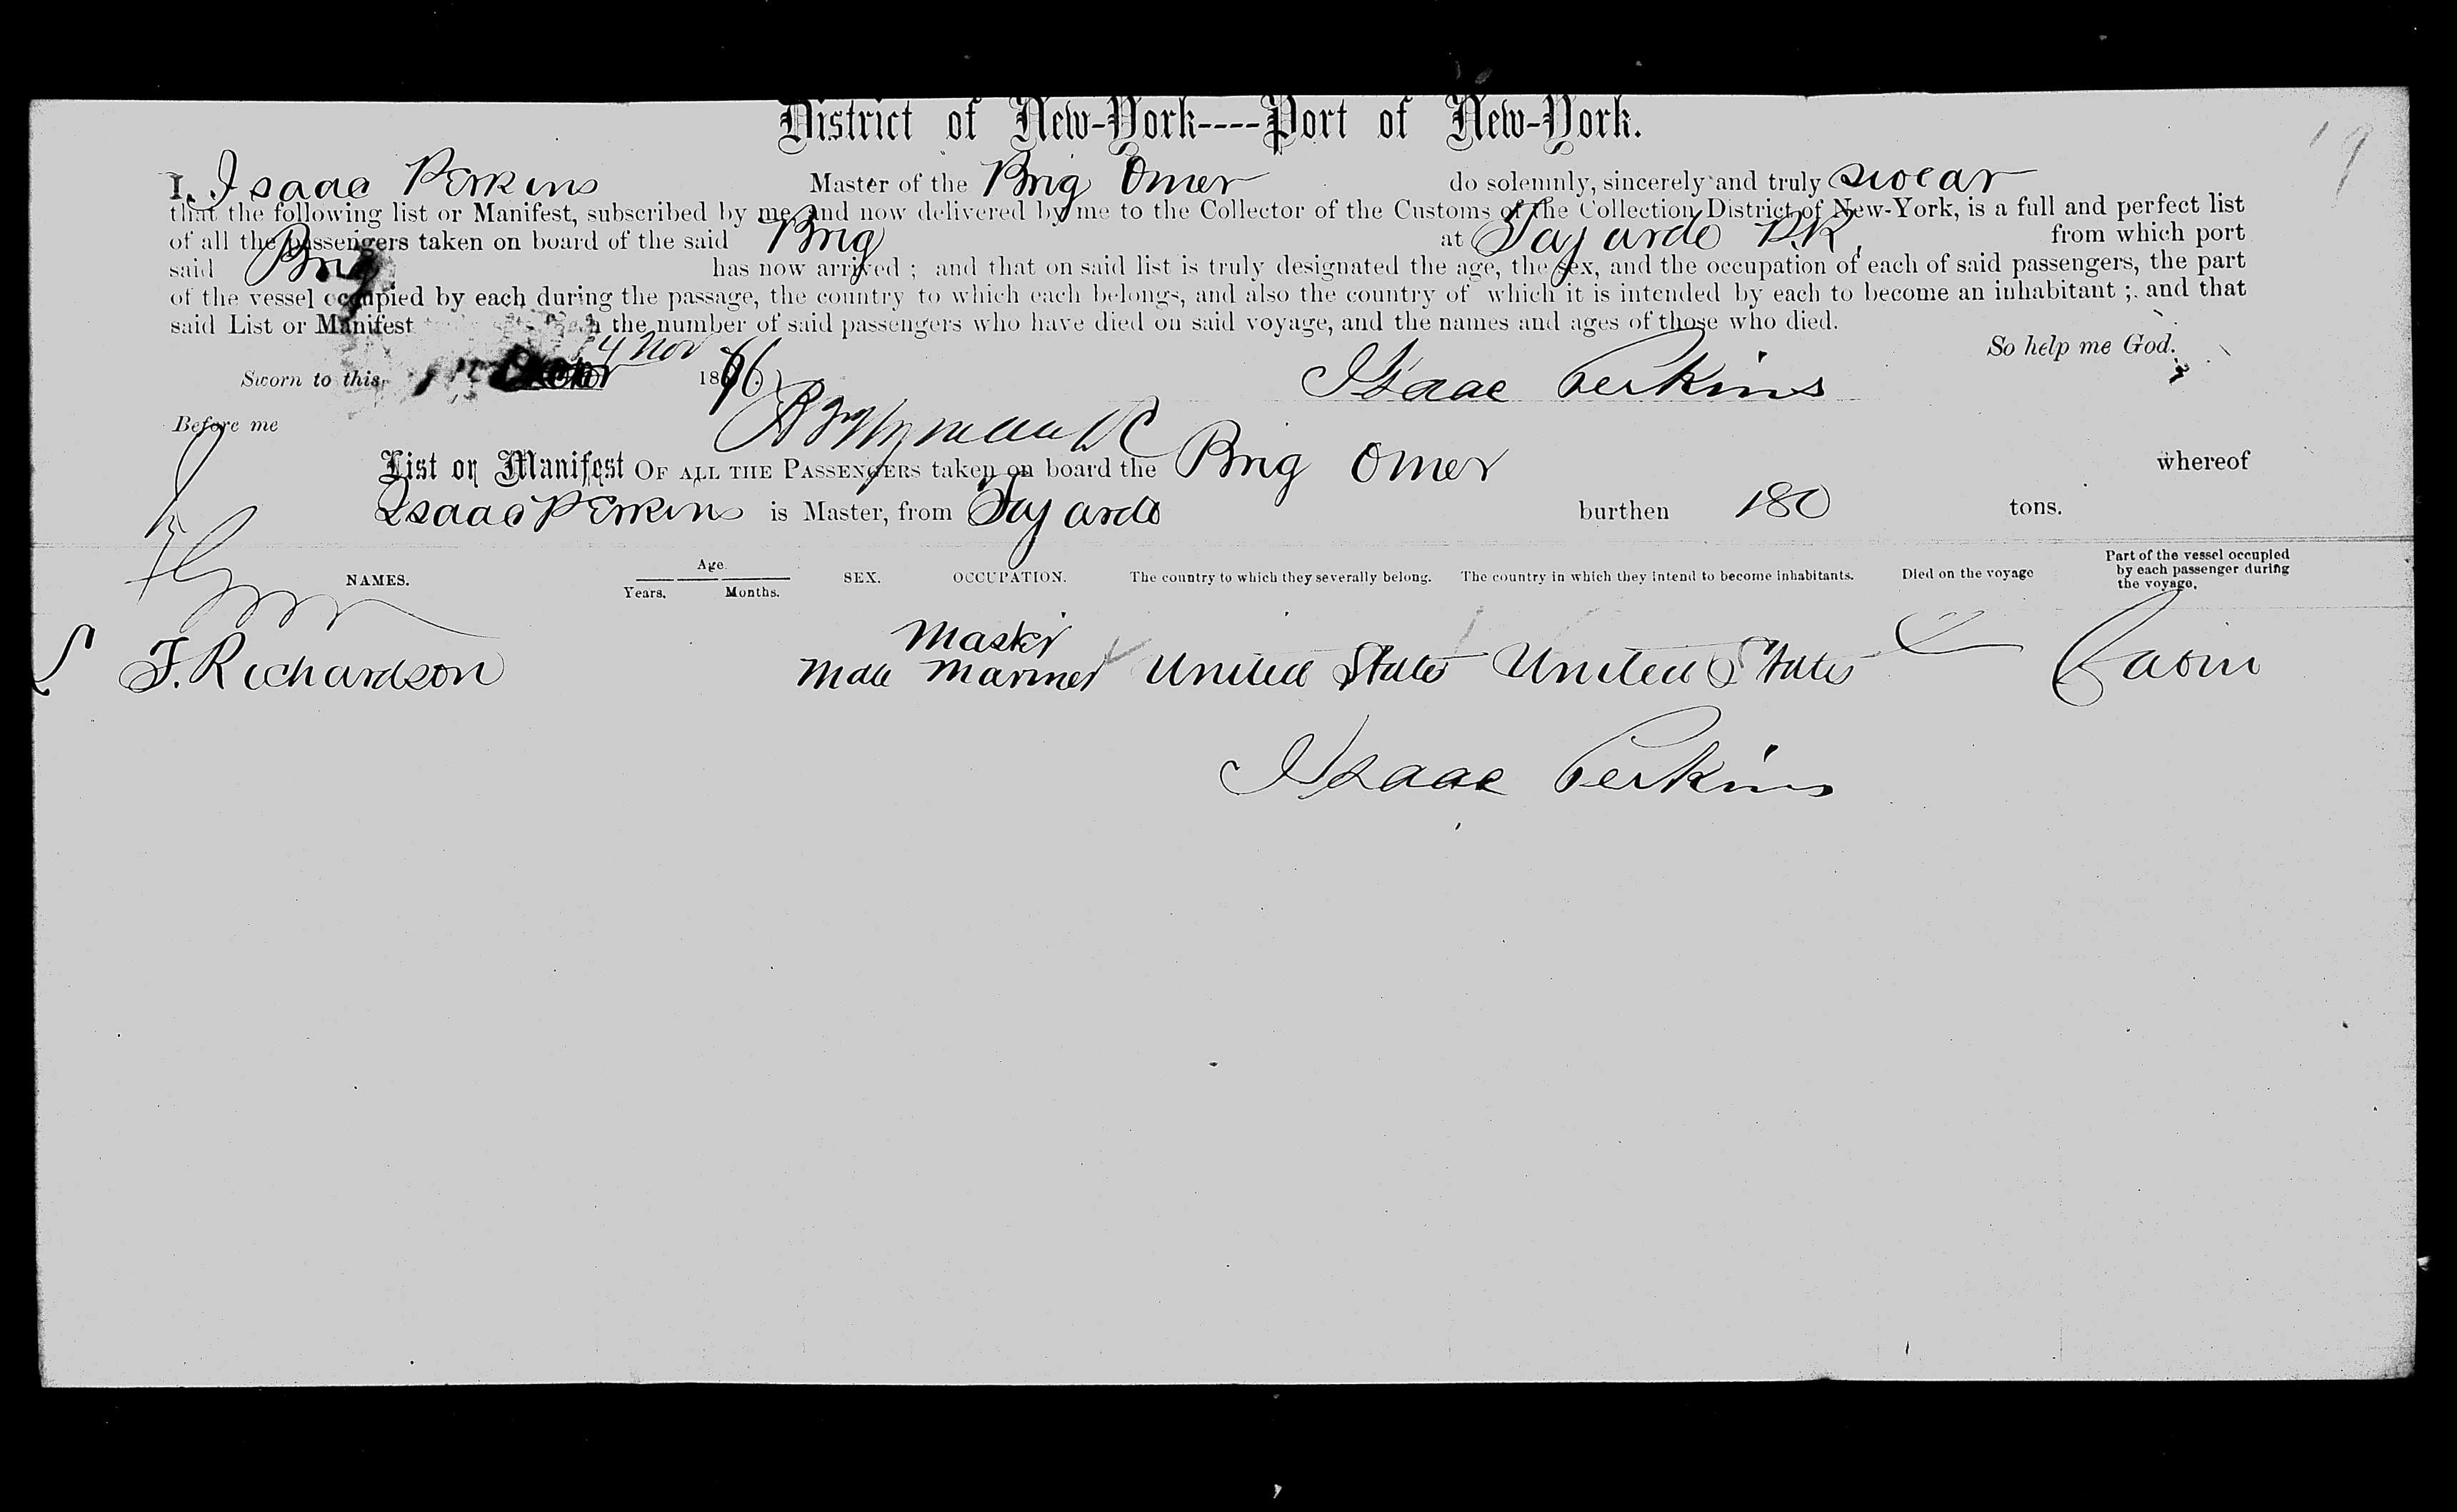 District of New-York----Port of New-York.
I, Isaac Perkins Master of the Brig Omer do solemnly, sincerely and truly swear
that the following list or Manifest, subscribed by me and now delivered by me to the Collector of the Customs of the Collection District of New-York, is a full and perfect list
of all the passengers taken on board of the said Brig at Fajardo P.R. from which port
said Brig has now arrived ; and that on said list is truly designated the age, the sex, and the occupation of each of said passengers, the part
of the vessel occupied by each during the passage, the country to which each belongs, and also the country of which it is intended by each to become an inhabitant ; and that
said List or Manifest the number of said passengers who have died on said voyage, and the names and ages of those who died.
So help me God.
Sworn to this 4 Nov 18 Isaac Perkins
Before me
List or Manifest OF ALL THE PASSENGERS taken on board the Brig Omer whereof
Isaac Perkins is Master, from Fajardo burthen 180 tons.
NAMES. Age. Years. Months. SEX. OCCUPATION. The country to which they severally belong. The country in which they intend to become inhabitants. Died on the voyage Part of the vessel occupied by each passenger during the voyage.
Master
F. Richardson Male Mariner United States United States Cabin
Isaac Perkins